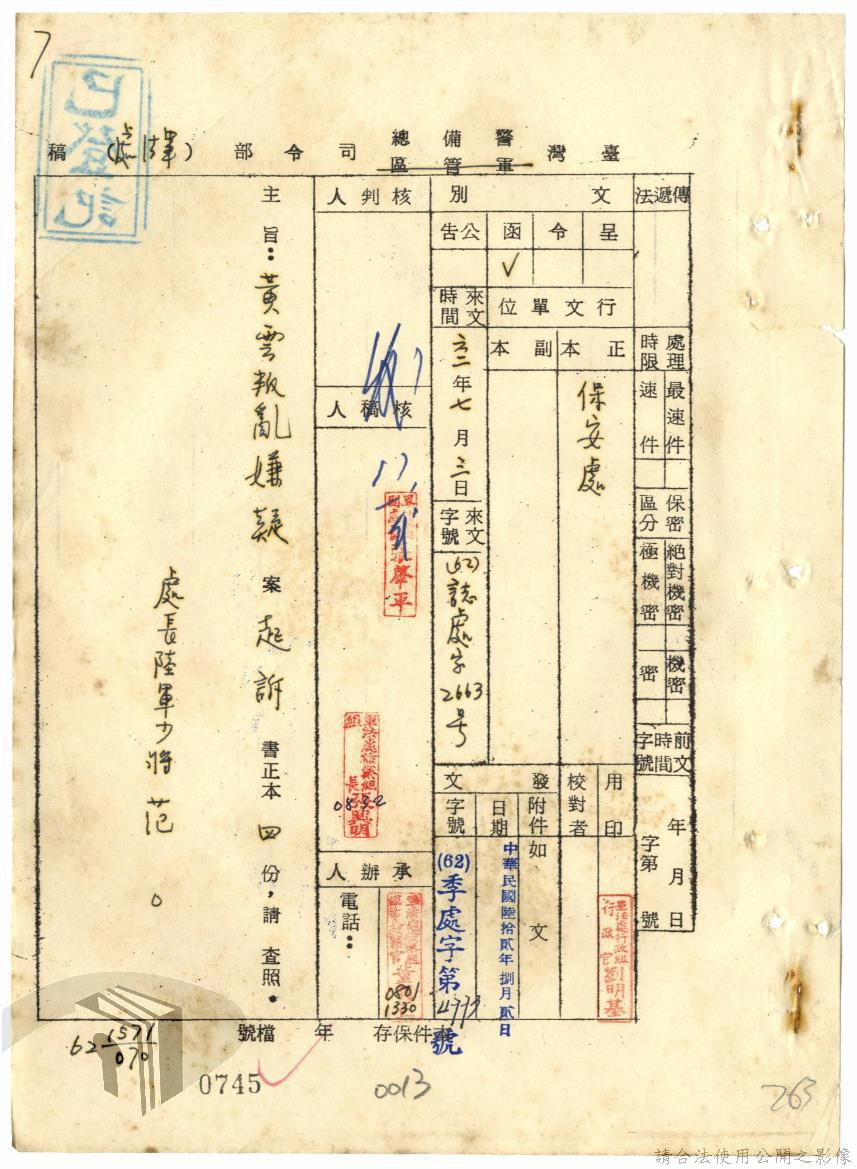 7
已登記
臺灣警備總司令部（軍法處）稿
軍管區
傳遞法
處理時限
最速件
速件
保密區分
絕對機密
極機密
機密
密
前文時間字號
年月日
字第號
文別
呈
令
函
公告
✓
行文單位
正本
副本
保安處
來文時間
六二年七月三日
來文字號
(62)誌處字2663号
用印
校對者
軍法處行政組行政官劉明基
發文
附件
如文
日期
中華民國陸拾貳年捌月貳日
字號
(62)季處字第4773號
核判人
核稿人
軍法處檢察組組長張照明
0832
承辦人
電話：
0801
1330
主旨：黃雲叛亂嫌疑案起訴書正本四份，請查照。
處長陸軍少將范○
本件保存年
檔號
62 1571/070
0745
0013
263
請合法使用公開之影像